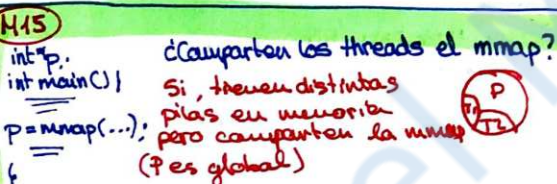 M15
int *p;
int main() {
p = mmap(...);
}
¿Comparten los threads el mmap?
Si, tienen distintas
pilas en memoria
pero comparten la mmap
(P es global)
P
T1
T2